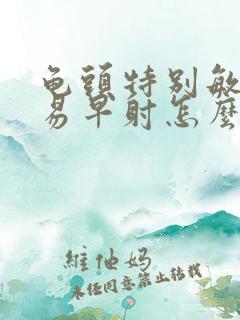 龟頭特别敏
易早射怎麽
維他妈
未经同意禁止转载